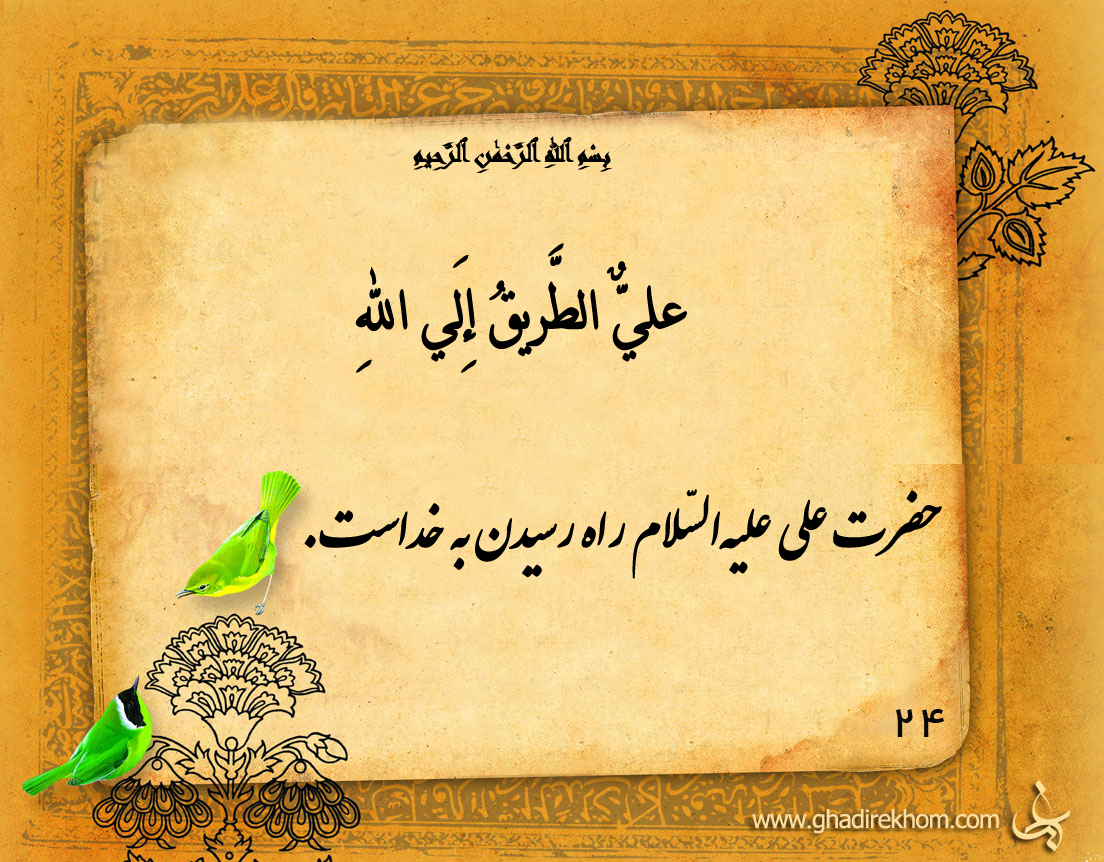 بِسْمِ ٱللَّهِ ٱلرَّحْمَٰنِ ٱلرَّحِيمِ
عليٌّ الطَّريقُ إِلَي اللهِ
حضرت علی علیه‌السّلام راه رسیدن به خداست.
۲۴
www.ghadirekhom.com